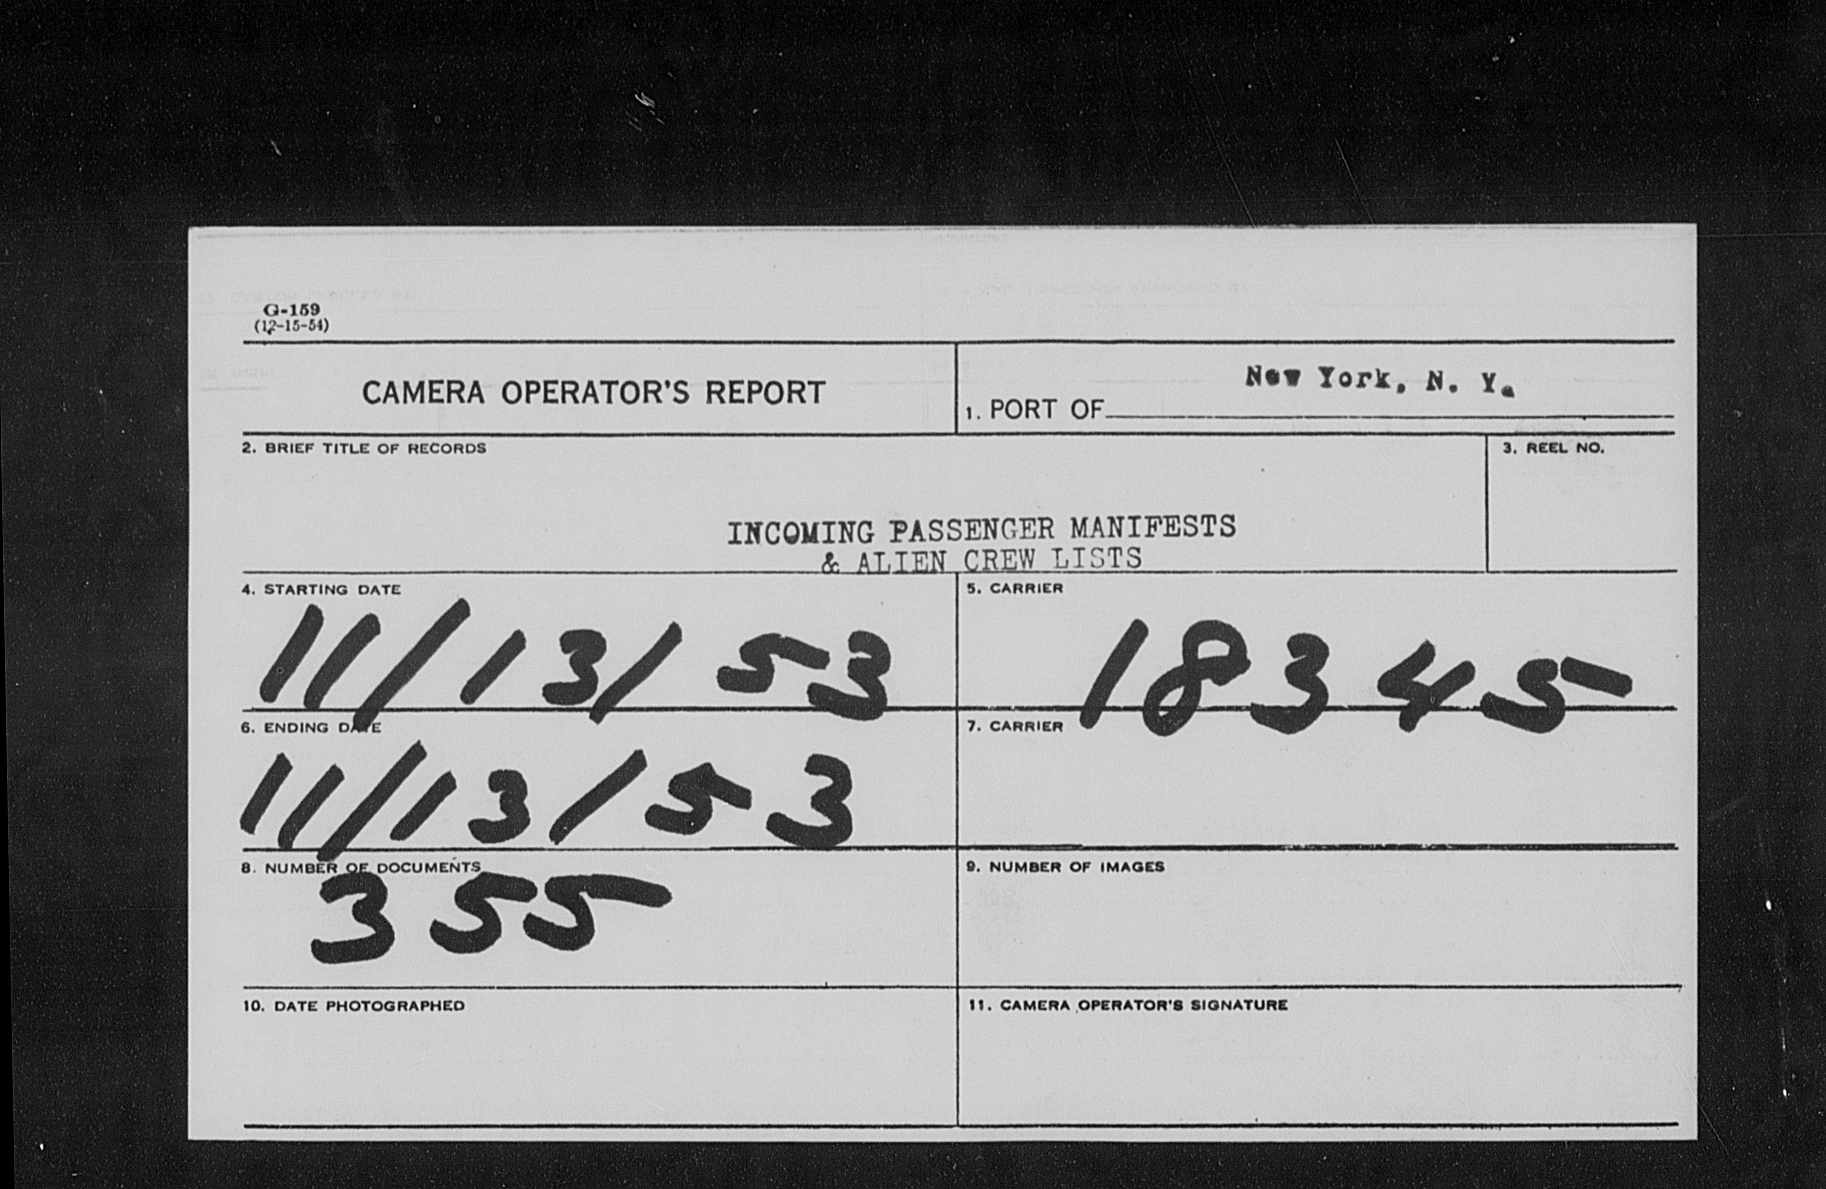 G-159
(12-15-54)
CAMERA OPERATOR'S REPORT
New York, N. Y.
1. PORT OF
2. BRIEF TITLE OF RECORDS
3. REEL NO.
INCOMING PASSENGER MANIFESTS
& ALIEN CREW LISTS
4. STARTING DATE
11/13/53
5. CARRIER
18345
6. ENDING DATE
11/13/53
7. CARRIER
8. NUMBER OF DOCUMENTS
355
9. NUMBER OF IMAGES
10. DATE PHOTOGRAPHED
11. CAMERA OPERATOR'S SIGNATURE